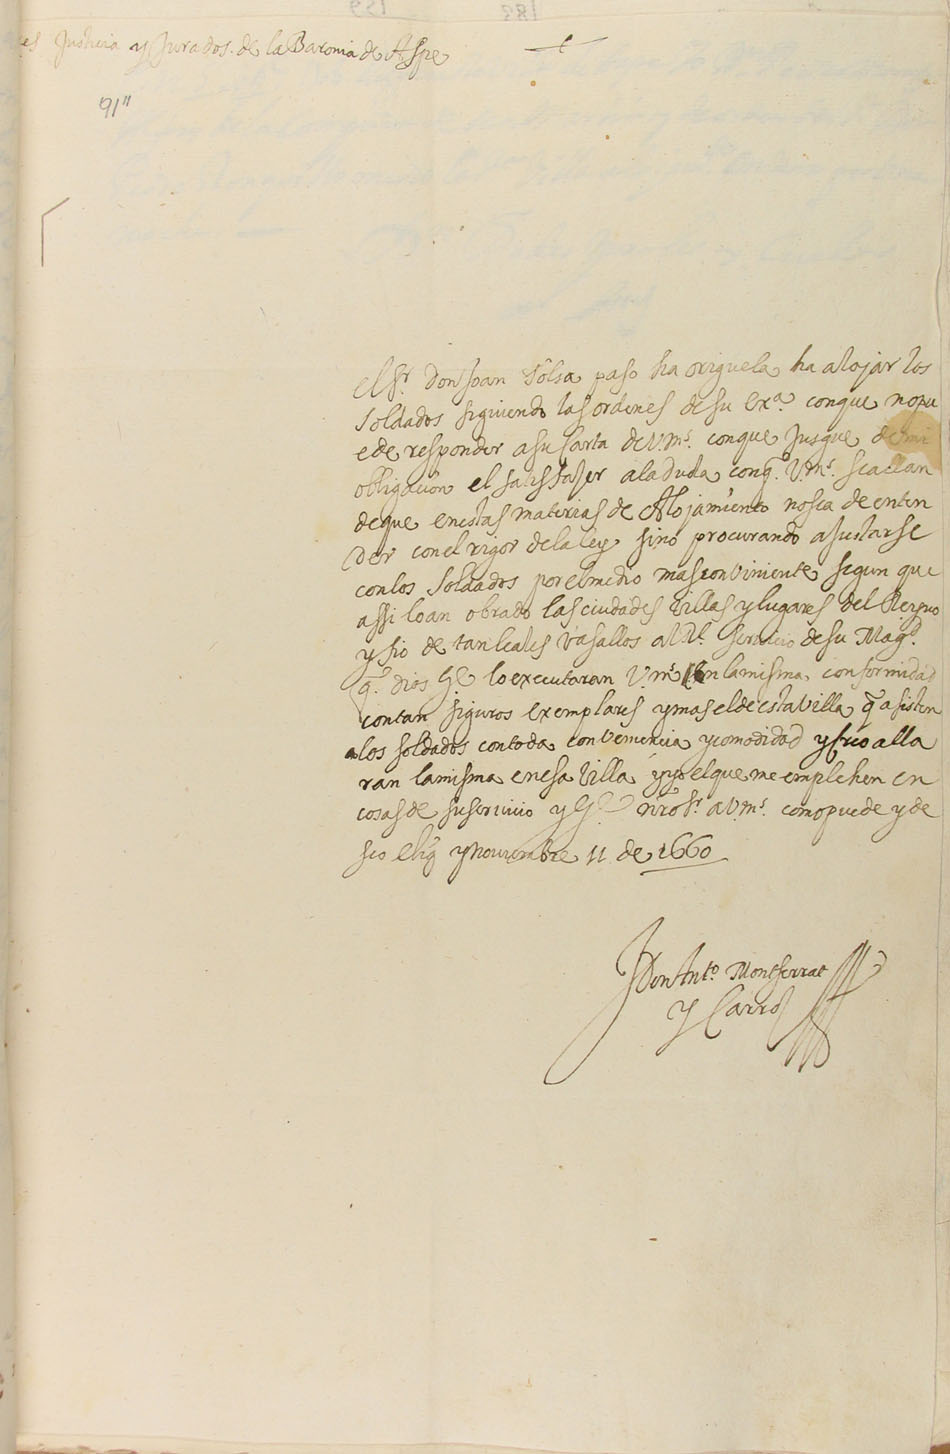 es Justicia y Jurados de la Baronia de Aspe
91"
El Sr. Don Joan Solsa paso ha origuela ha alojar los
soldados sigiuendo las ordenes de su Exa. con que nopu
ede responder a su Carta de V.ms. con que Jusgue de mi
obligacion el satisfaser a la duda conq. V.ms. se allan
de que en estas materias de Alojamiento no sea de enten
der con el rigor de la ley sino procurando ajustarse
con los soldados por el medio mas conviniente segun que
assi lo an obrado las ciudades villas y lugares del Reyno
y fio de tan leales vasallos al Rl. servicio de su Magd.
q. Dios Ge. lo executaran V.ms. en la misma conformidad
con tan siguros exemplares y mas el de esta villa q asisten
a los soldados con toda convenencia y comodidad y creo alla
ran la misma en esa villa y yo el que me emplehen en
cosas de su servicio y Ge. nro Sr. a V.ms. como puede y de
seo Elig y Noviembre 11 de 1660
Don Anto. Montserrat
y Carros